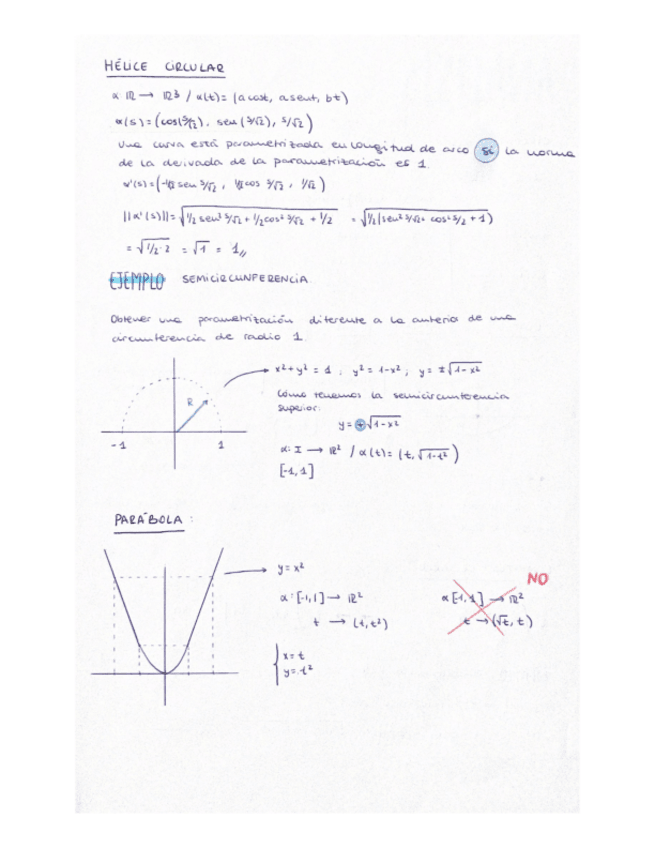 HÉLICE CIRCULAR
α: ℝ → ℝ³ / α(t) = (a cos t, a sen t, bt)
α(s) = (cos(s/√2), sen(s/√2), s/√2)
Una curva está parametrizada en longitud de arco sí la norma
de la derivada de la parametrización es 1
α'(s) = (-1/√2 sen s/√2, 1/√2 cos s/√2, 1/√2)
||α'(s)|| = √(1/2 sen² s/√2 + 1/2 cos² s/√2 + 1/2) = √(1/2 (sen² s/√2 + cos² s/2 + 1))
= √(1/2·2) = √1 = 1,,
EJEMPLO SEMICIRCUNFERENCIA.
Obtener una parametrización diferente a la anterior de una
circunferencia de radio 1.
x² + y² = 1 ; y² = 1-x² ; y = ±√(1-x²)
Cómo tenemos la semicircunferencia
superior:
y = +√(1-x²)
R
-1 1
α: I → ℝ² / α(t) = (t, √(1-t²))
[-1,1]
PARÁBOLA:
y = x²
α: [-1,1] → ℝ²
t → (1, t²)
x = t
y = t²
NO
α [-1,1] → ℝ²
t → (√t, t)